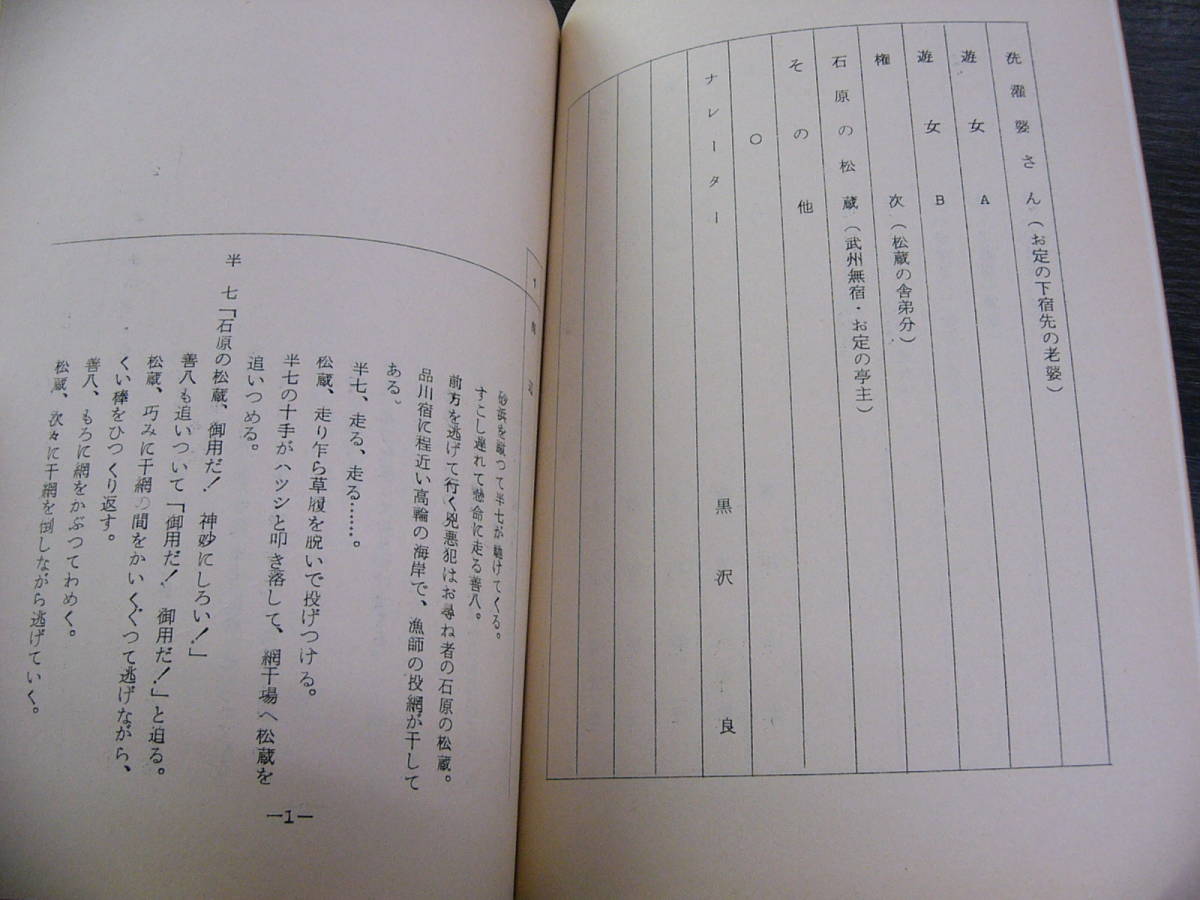 洗濯婆さん(お定の下宿先の老婆)
遊女A
遊女B
権次(松蔵の舎弟分)
石原の松蔵(武州無宿・お定の亭主)
その他
○
ナレーター 黒沢良
1
砂浜を蹴つて半七が駈けてくる。
すこし遅れて懸命に走る善八。
前方を逃げて行く兇悪犯はお尋ね者の石原の松蔵。
品川宿に程近い高輪の海岸で、漁師の投網が干して
ある。
半七、走る、走る……。
松蔵、走り乍ら草履を脱いで投げつける。
半七の十手がハツシと叩き落して、網干場へ松蔵を
追いつめる。
半七「石原の松蔵、御用だ! 神妙にしろい!」
善八も追いついて「御用だ! 御用だ!」と迫る。
松蔵、巧みに干網の間をかいくぐつて逃げながら、
くい棒をひつくり返す。
善八、もろに網をかぶつてわめく。
松蔵、次々に干網を倒しながら逃げていく。
—1—